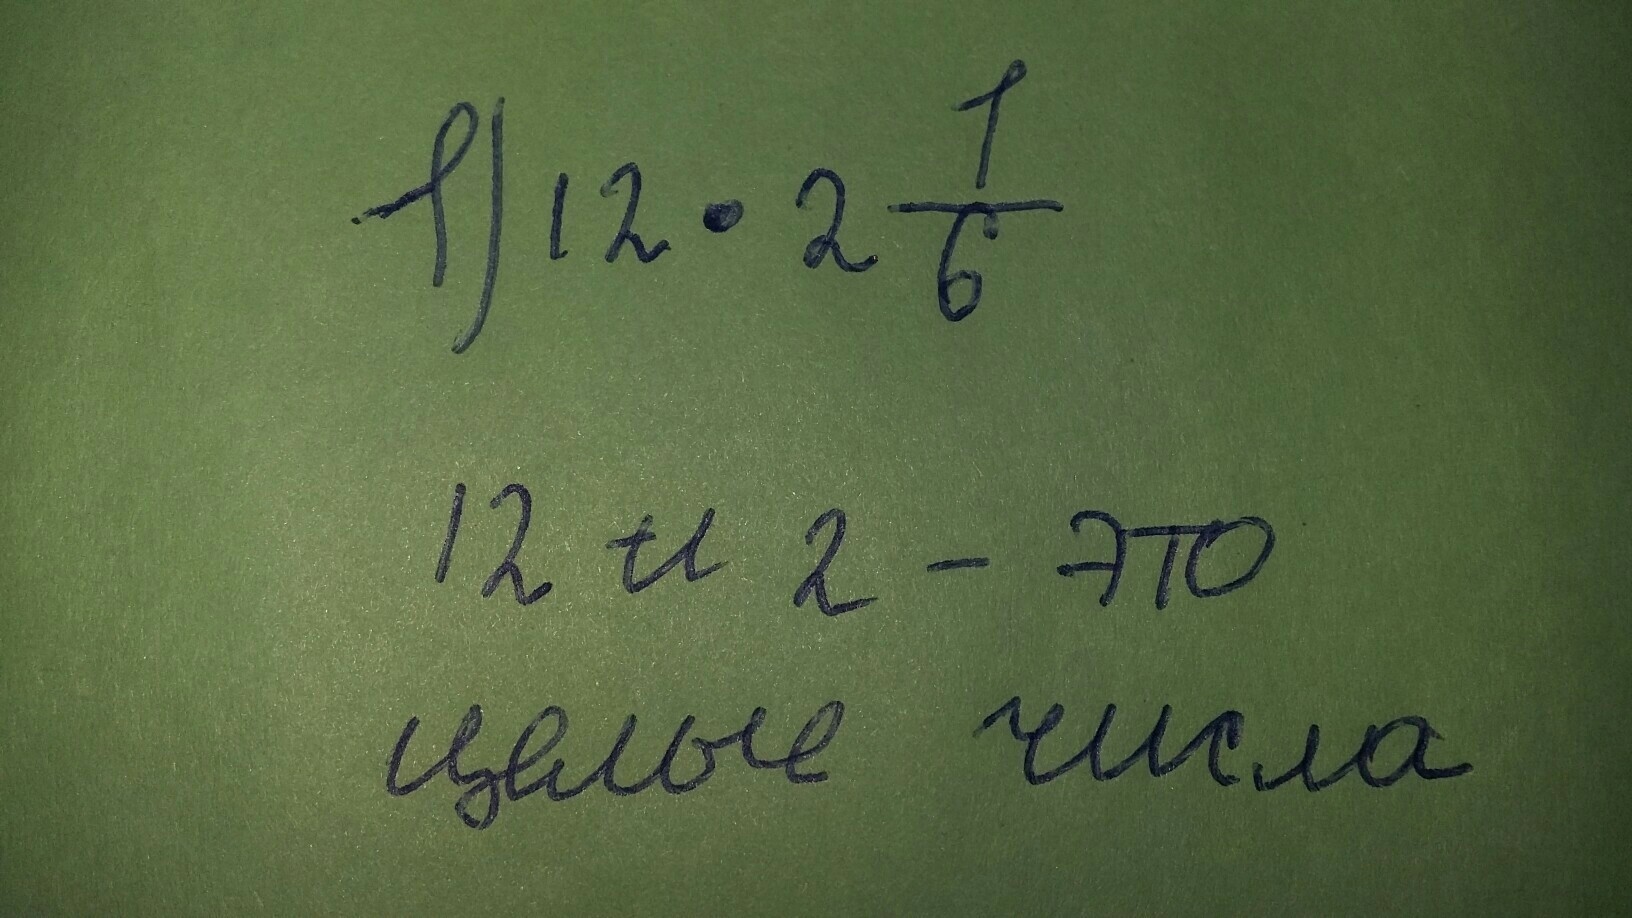 1) 12 • 2 1/6
12 и 2 - это
целые числа